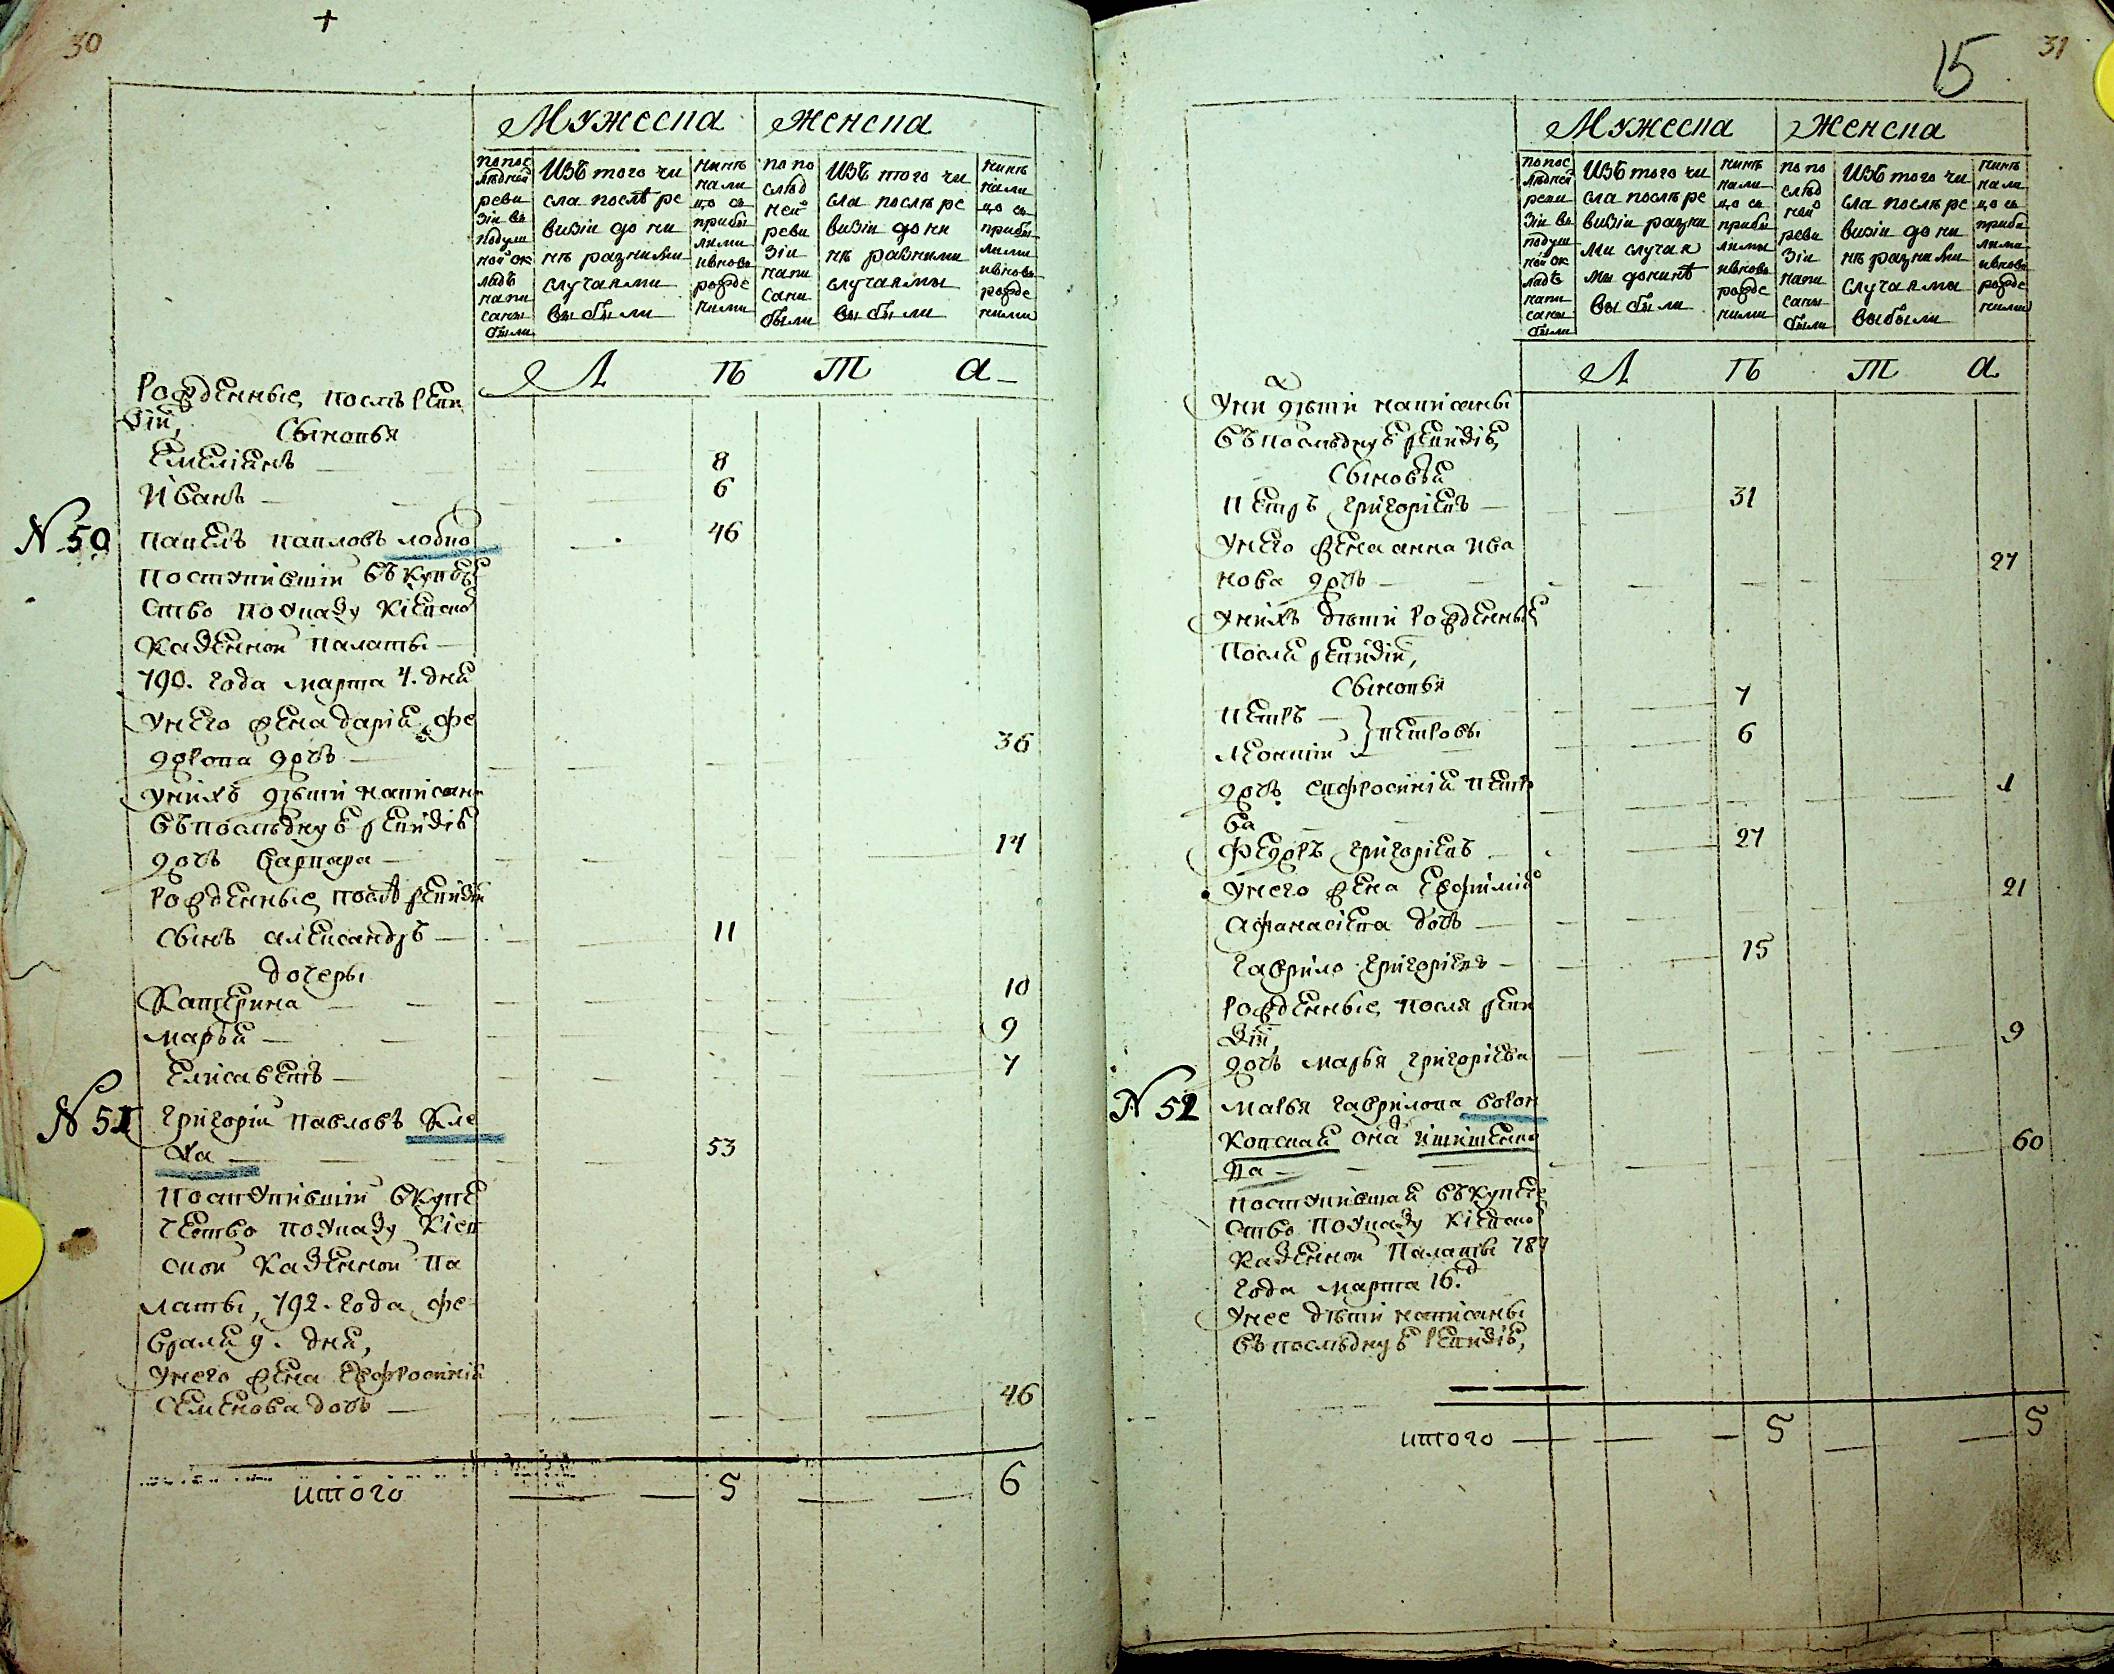 30
Мужеска женска
по пос
лѣдней
реви
зіи въ
подуш
ной ок
ладѣ
напи
саны
были
Изъ того чи
сла послѣ ре
визіи до ни
нѣ разними
случаями
выбыли
нинѣ
нали
цо съ
прибы
лими
ивновь
рожде
ними
по по
слѣд
ней
реви
зіи
напи
сани
были
Изъ того чи
сла послѣ ре
визіи до ни
нѣ разними
случаямы
выбыли
нинѣ
нали
цо съ
прибы
лими
ивновь
рожде
ними
Л ѣ т а
Рожденные послѣ реви
зіи,
Сыновья
Емеліянъ 8
Иванъ 6
N 50 Павелъ Павловъ Лобко 46
поступившій въ купече
ство по указу Кіевской
Казенной Палаты
790. года марта 4. дня
У него жена Дарія Фе
дорова дочь 36
У нихъ дѣти написани
въ послѣднуе ревизіе
дочь Варвара 14
Рожденные послѣ ревизіи
Сынъ Александръ 11
дочеры
Катерина 10
Марья 9
Елисаветъ 7
N 51 Григорій Павловъ Кле
ха 53
поступившій в купе
чество по указу Кіев
ской Казенной Па
латы, 792. года фе
враля 9. дня,
У него жена Евфросинія
Семенова дочь 46
итого 5 6
15 31
Мужеска Женска
по пос
лѣдней
реви
зіи въ
подуш
ной ок
ладѣ
напи
саны
были
Изъ того чи
сла послѣ ре
визіи разни
ми случая
мы донинѣ
выбыли
нинѣ
нали
цо съ
прибы
лимы
ивновь
рожде
ними
по по
слѣд
ней
реви
зіи
напи
саны
были
Изъ того чи
сла послѣ ре
визіи до ни
нѣ разними
случаямы
выбыли
нинѣ
нали
цо съ
прибы
лими
ивновь
рожде
ними
Л ѣ т а
У ни дѣти написаны
въ послѣднуе ревизіе,
Сыновья
Петръ Григоріевъ 31
У него жена Анна Ива
нова дочь 27
У нихъ дѣти Рожденные
посля ревизіи,
Сыновья
Петръ 7
Леонтій } Петровы 6
дочь Евфросинія Петро
ва 1
Федоръ Григоріевъ 27
У него жена Евфимія 21
Афанасіева дочь
Гаврило Григоріевъ 15
Рожденные посля реви
зіи,
дочь Марья Григоріева 9
N 52 Марья Гаврилова
она 60
поступившая въ купече
ство по указу Кіевской
Казенной Палаты 787
года марта 16.
У нее дѣти написаны
въ послѣднуе Ревизіе,
итого 5 5